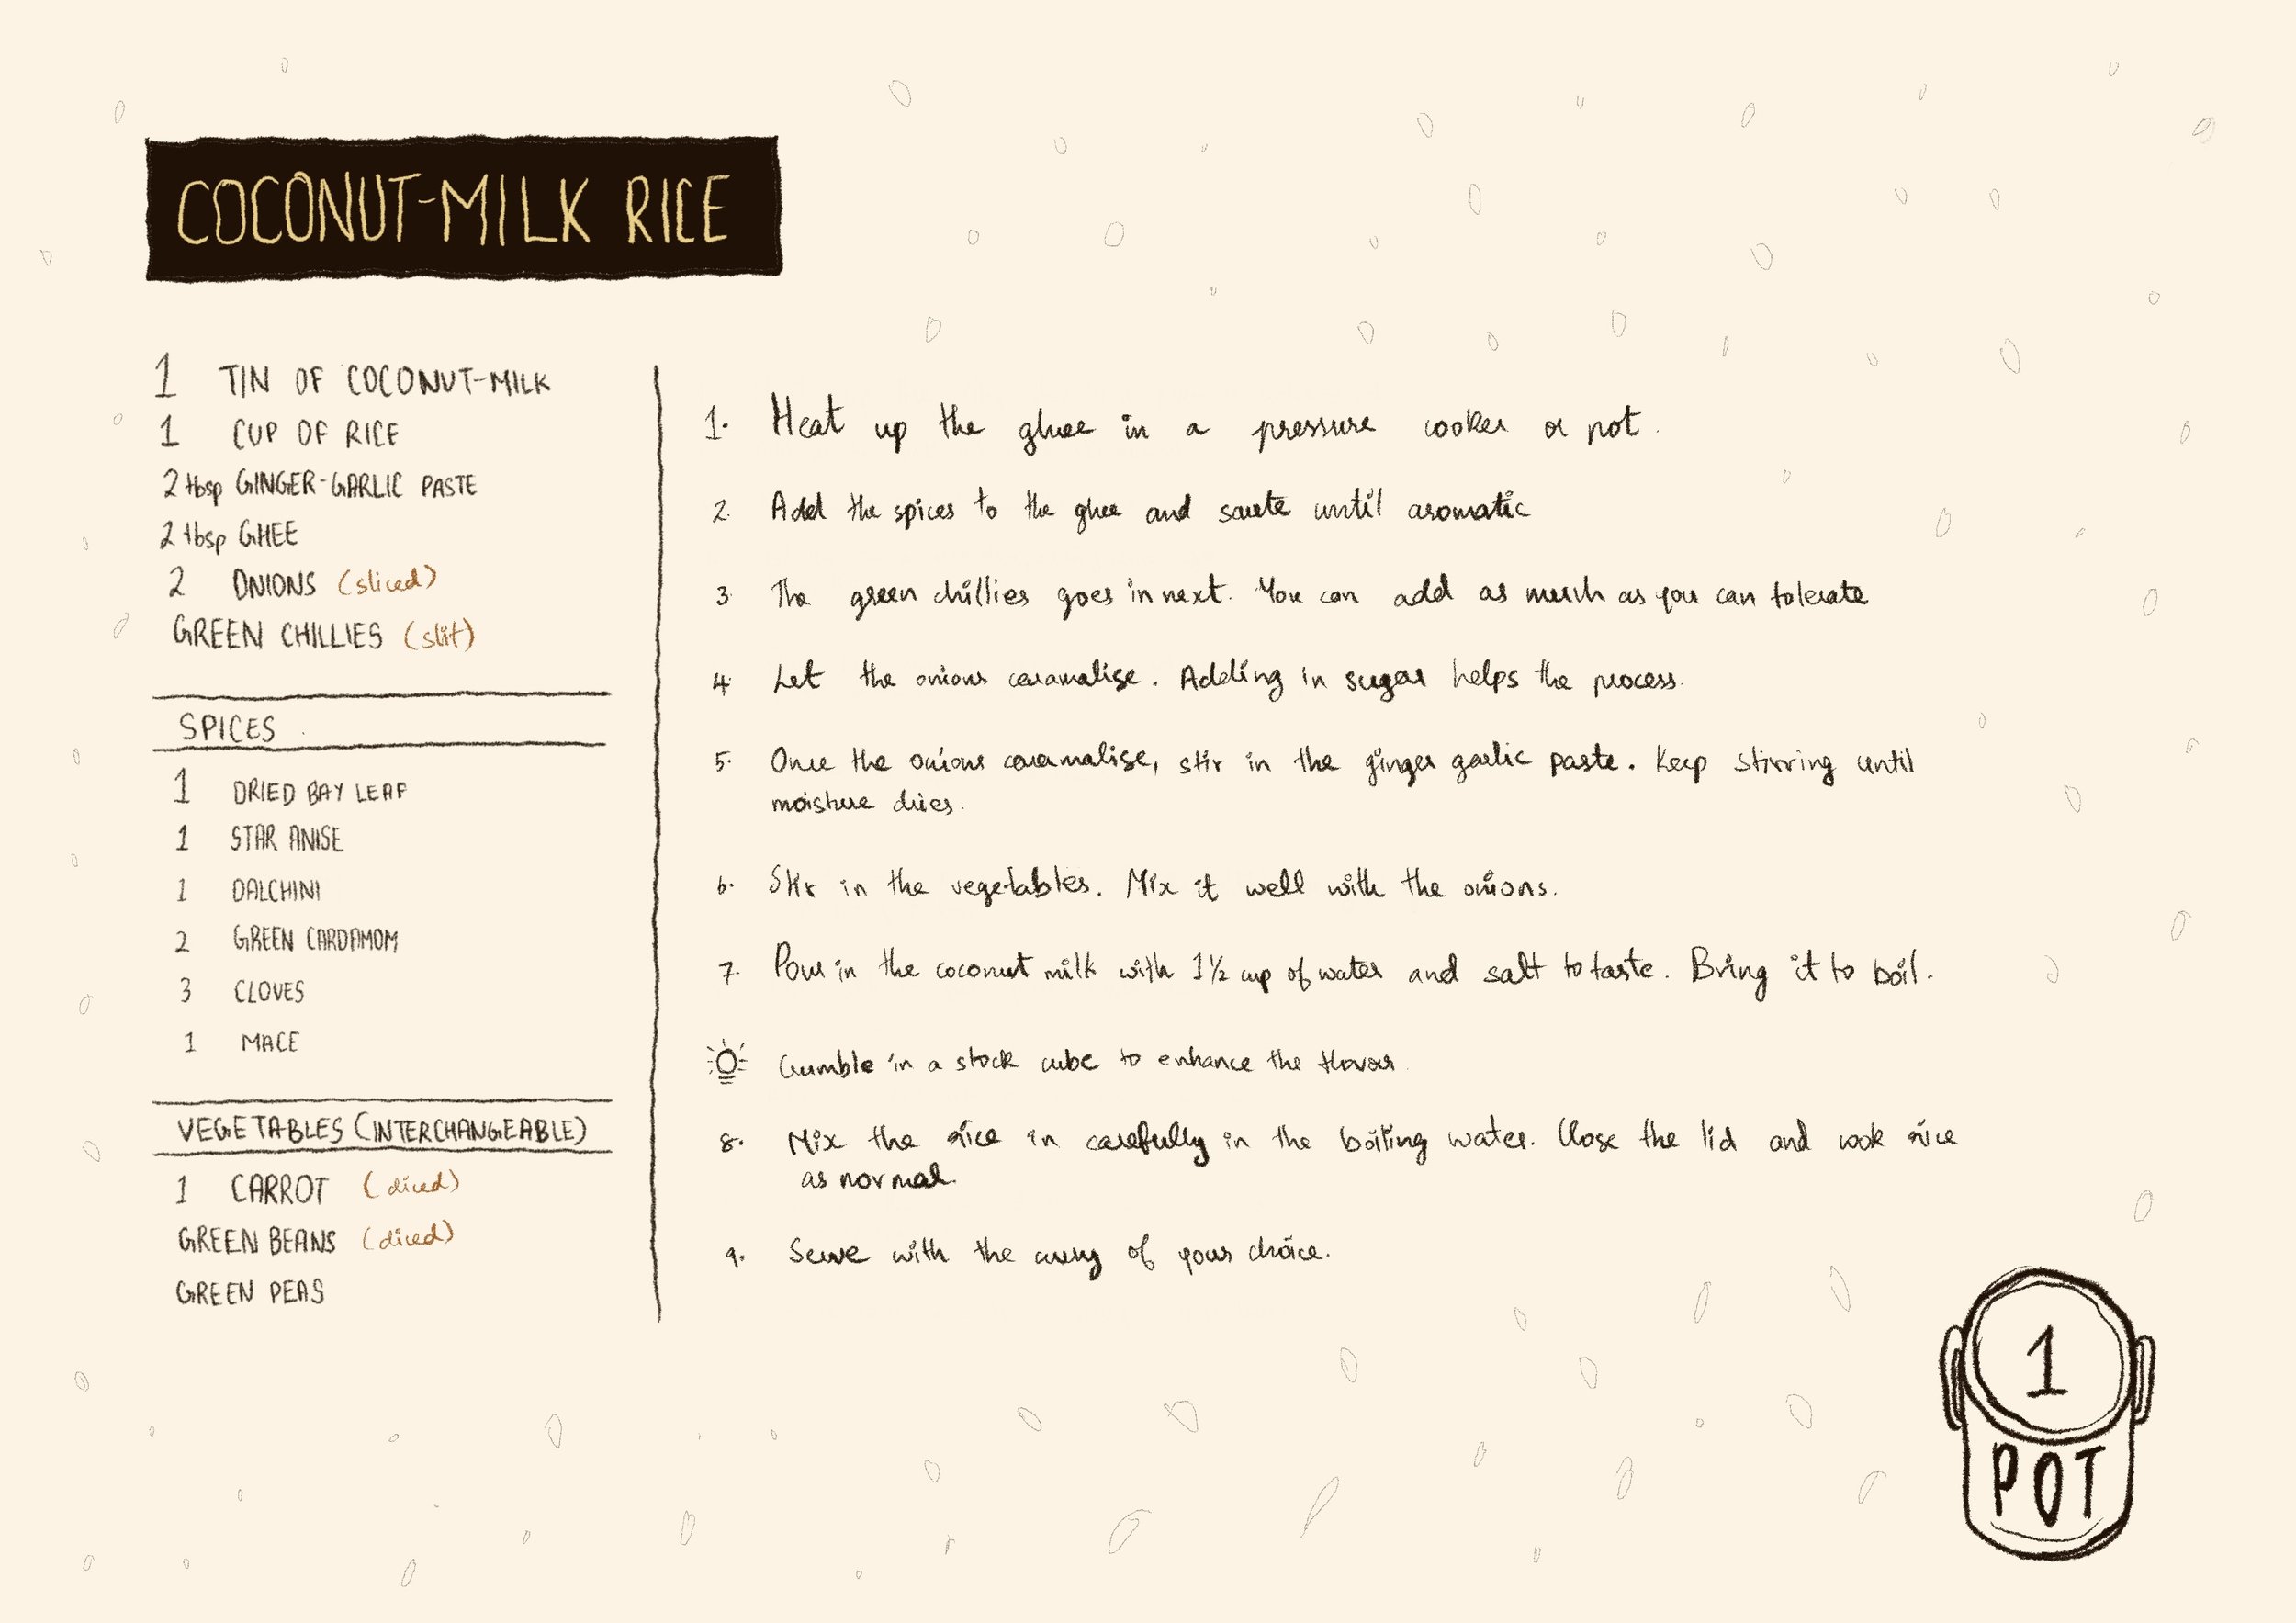 COCONUT-MILK RICE
1 TIN OF COCONUT-MILK
1 CUP OF RICE
2 tbsp GINGER-GARLIC PASTE
2 tbsp GHEE
2 ONIONS (sliced)
GREEN CHILLIES (slit)
SPICES
1 DRIED BAY LEAF
1 STAR ANISE
1 DALCHINI
2 GREEN CARDAMOM
3 CLOVES
1 MACE
VEGETABLES (INTERCHANGEABLE)
1 CARROT (diced)
GREEN BEANS (diced)
GREEN PEAS
1. Heat up the ghee in a pressure cooker or pot.
2. Add the spices to the ghee and saute until aromatic
3. The green chillies goes in next. You can add as much as you can tolerate
4. Let the onions caramalise. Adding in sugar helps the process.
5. Once the onions caramalise, stir in the ginger garlic paste. Keep stirring until
moisture dries.
6. Stir in the vegetables. Mix it well with the onions.
7. Pour in the coconut milk with 1½ cup of water and salt to taste. Bring it to boil.
Crumble in a stock cube to enhance the flavour
8. Mix the rice in carefully in the boiling water. Close the lid and cook rice
as normal.
9. Serve with the curry of your choice.
1
POT